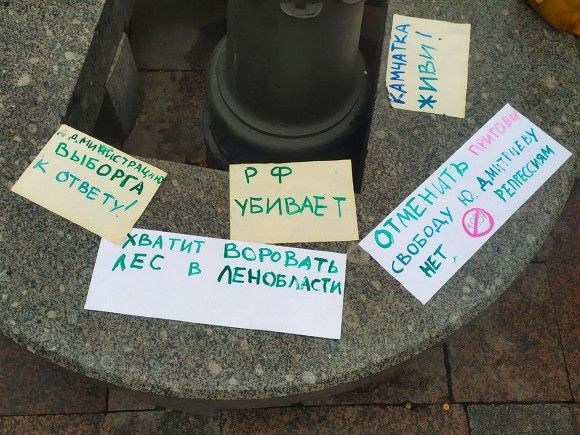 АДМИНИСТРАЦИЮ
ВЫБОРГА
К ОТВЕТУ!
РФ
УБИВАЕТ
КАМЧАТКА
ЖИВИ!
ХВАТИТ ВОРОВАТЬ
ЛЕС В ЛЕНОБЛАСТИ
ОТМЕНИТЬ ПРИГОВОР
СВОБОДУ Ю. ДМИТРИЕВУ
НЕТ РЕПРЕССИЯМ